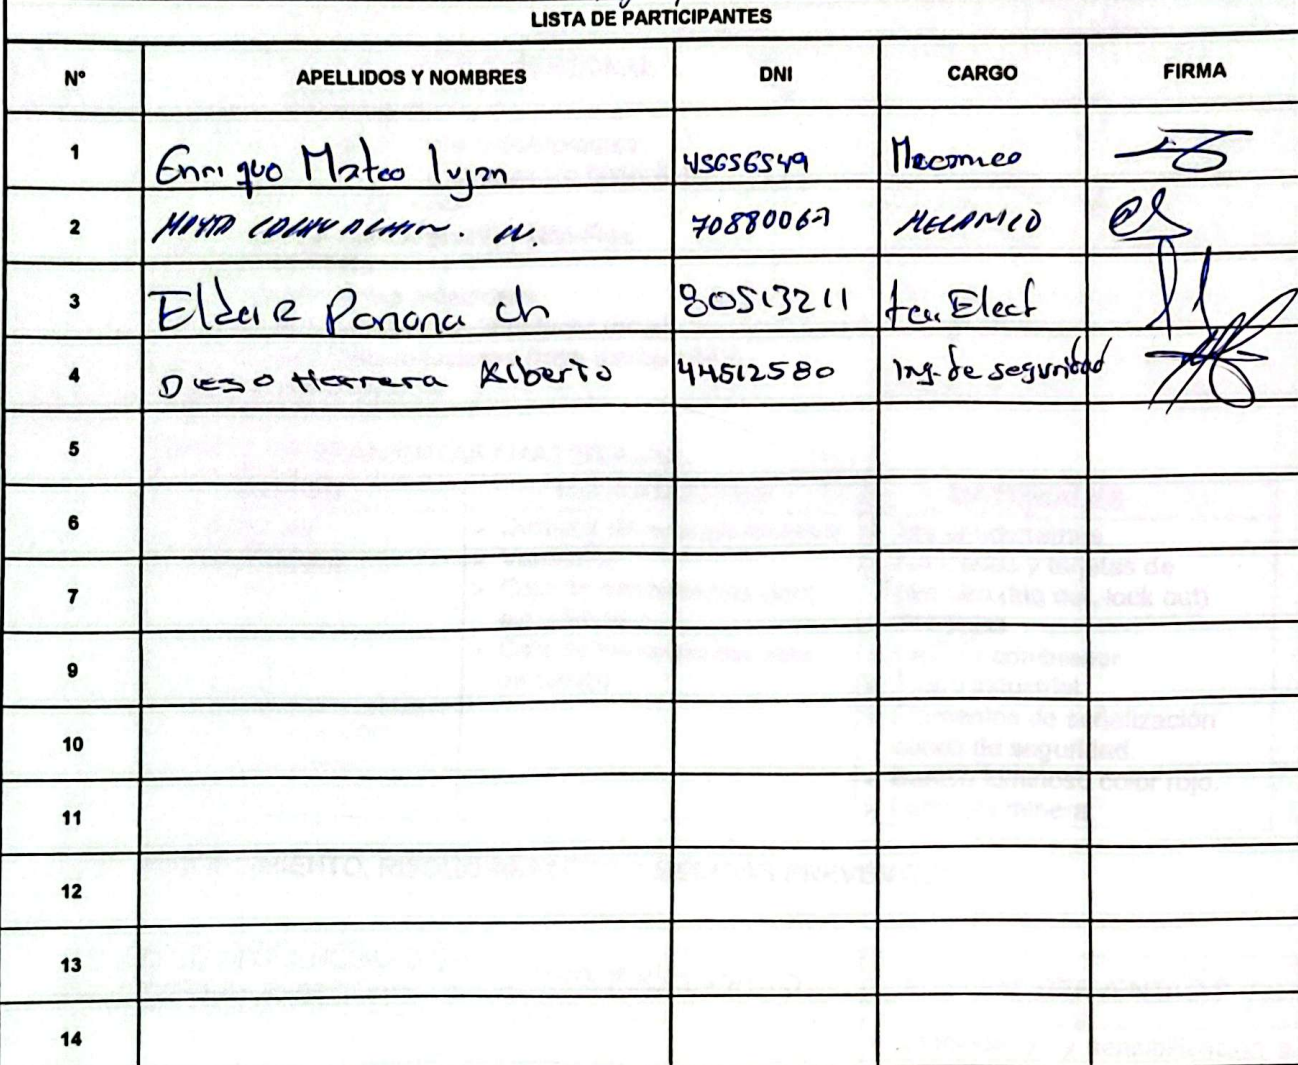 LISTA DE PARTICIPANTES
N° APELLIDOS Y NOMBRES DNI CARGO FIRMA
1 Enrique Mateo Lujan 45656549 Mecanico
2 70880067 MECANICO
3 Eldaiz Panana Ch 80513211 tec. Elect
4 Diego Herrera Alberto 44512580 Ing. de seguridad
5
6
7
9
10
11
12
13
14